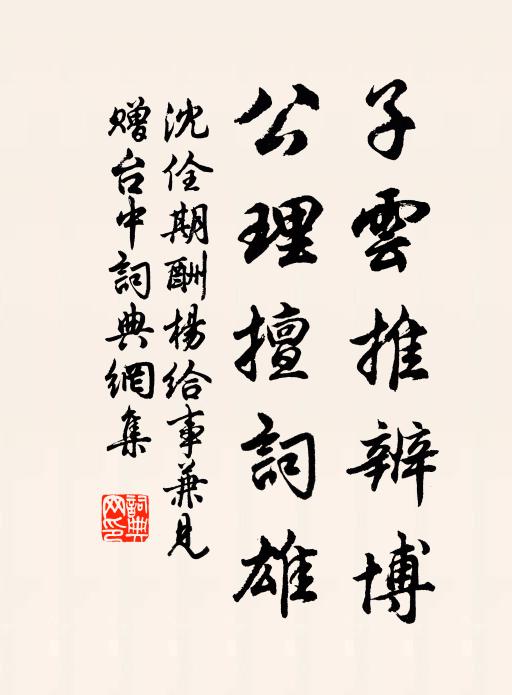 子雲推辨博
公理擅詞雄
沈佺期酬楊給事兼見
贈台中詞典網集
詞典網印